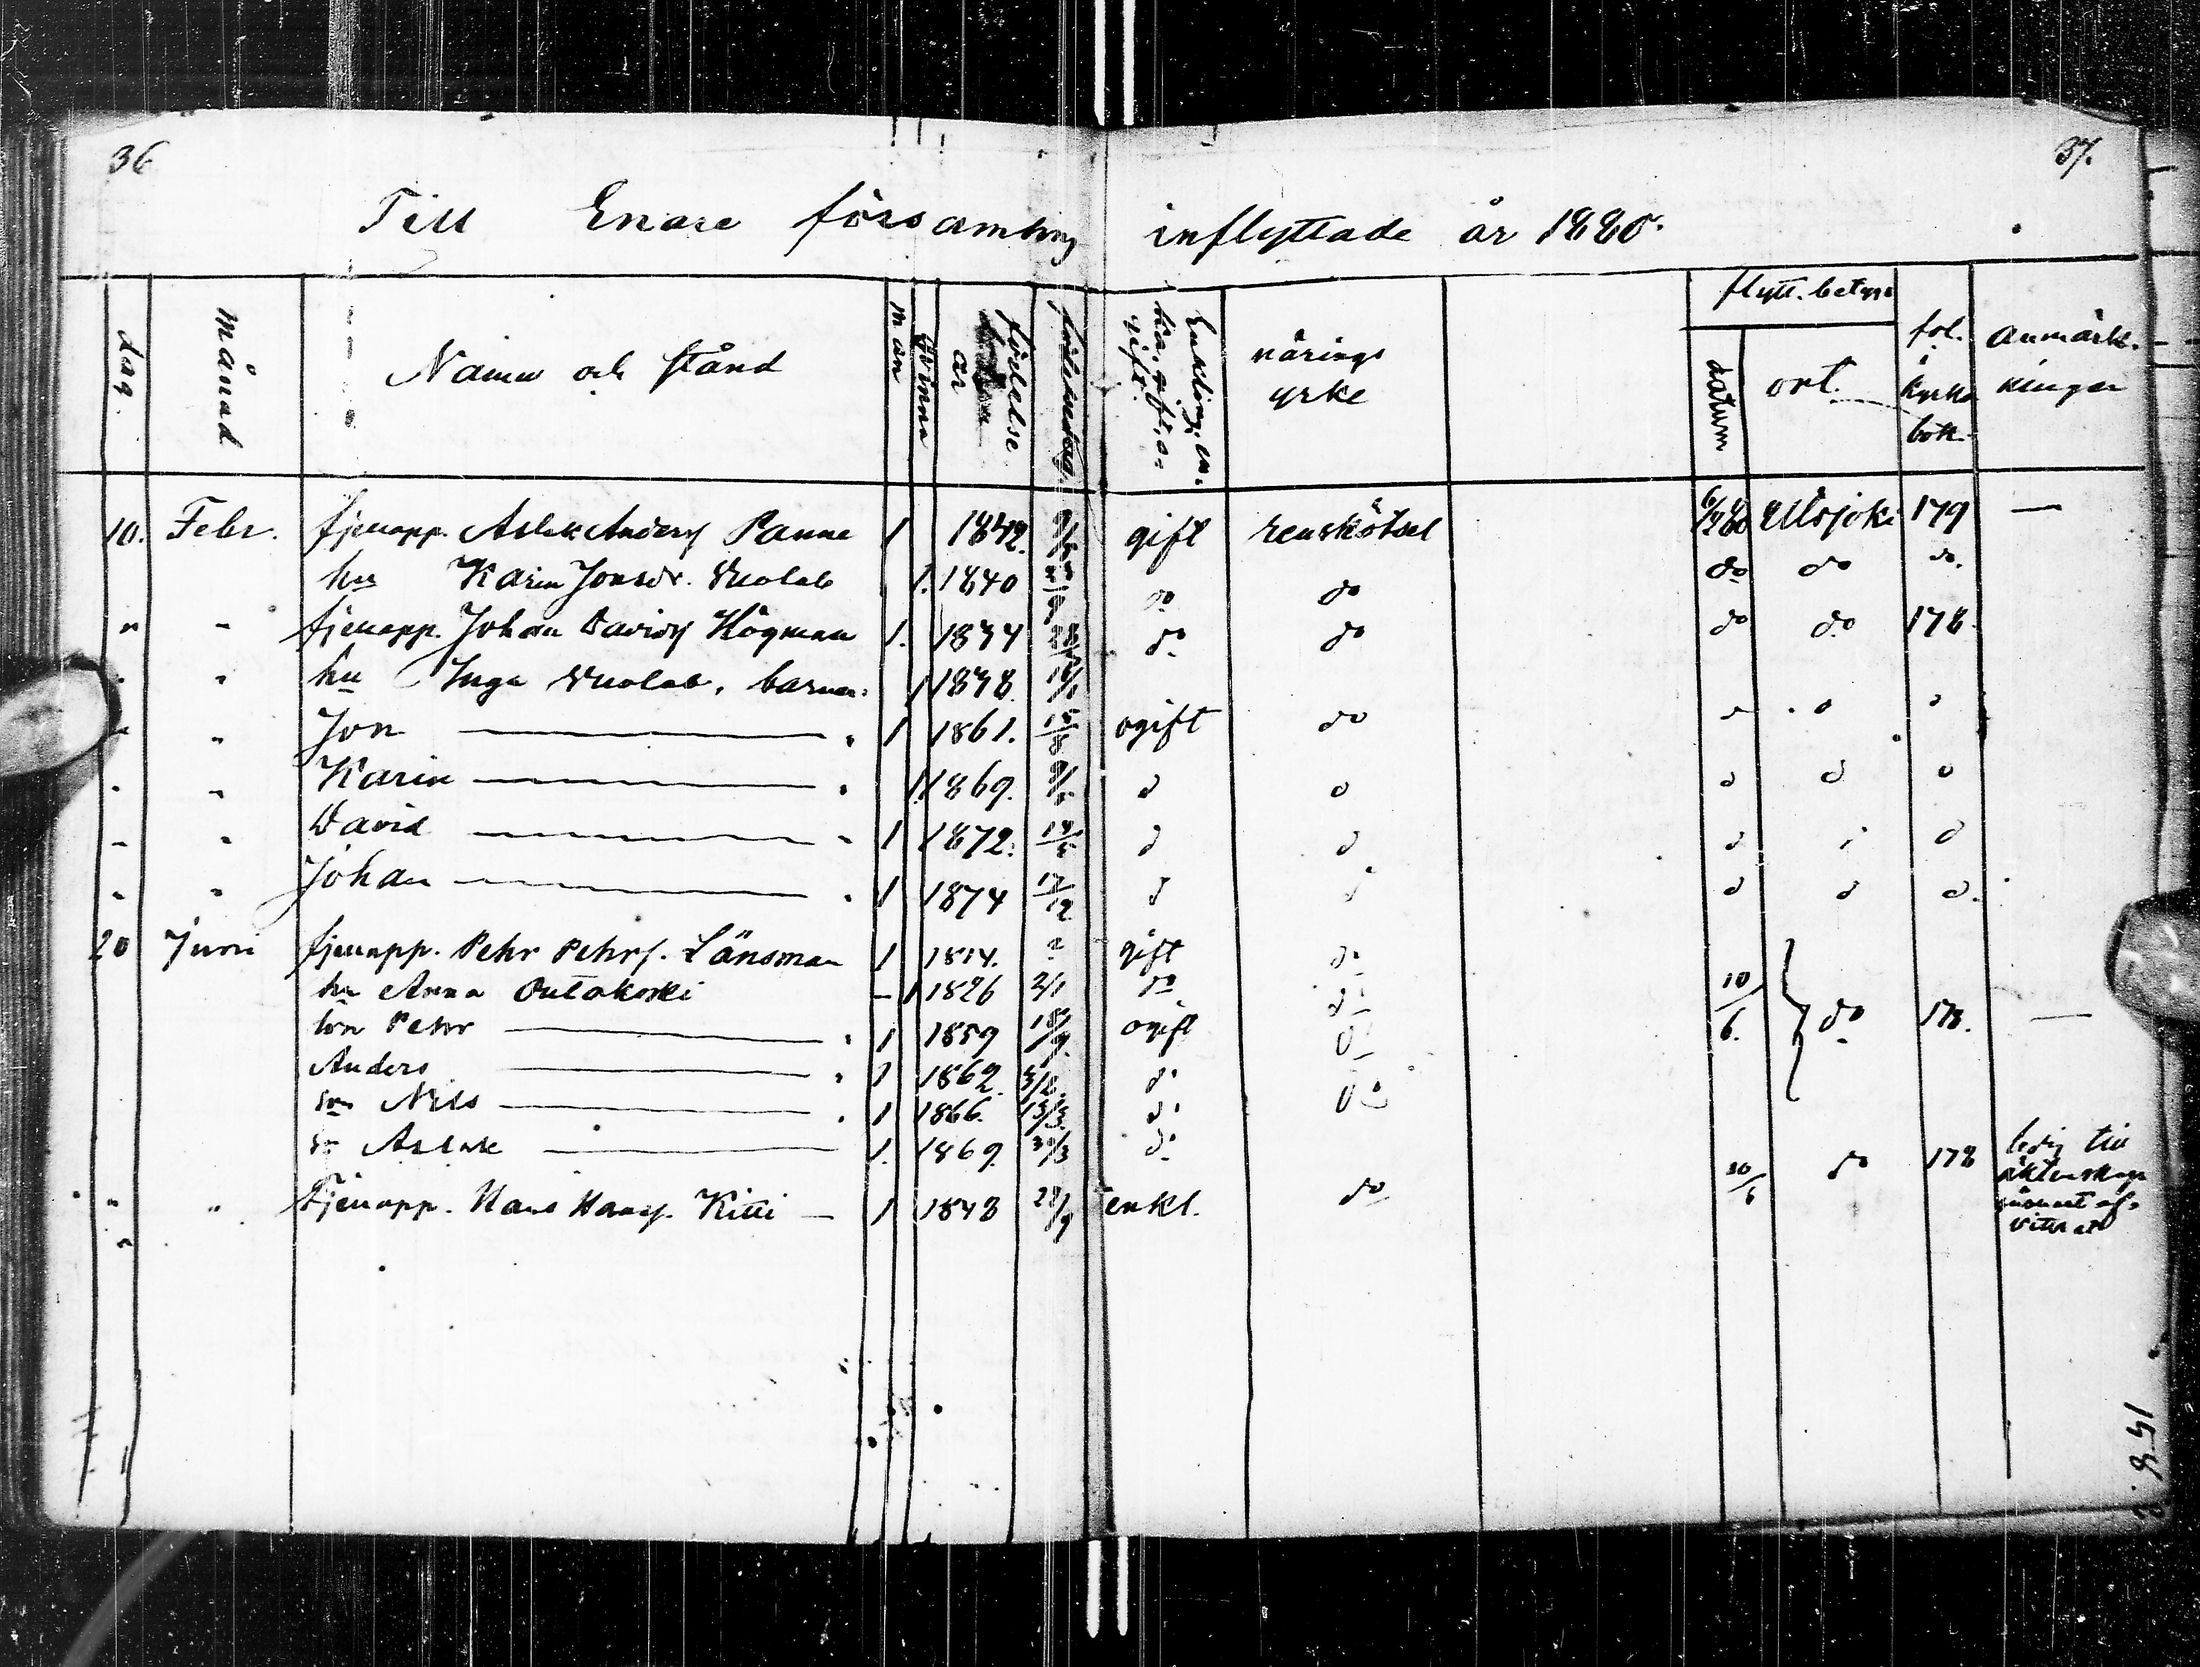 36
37.
Till Enare församling inflyttade år 1880.
dag.
månad
Namn och stånd
man
qvinna
födelse
år
födelsedag.
Enkling, en-
ka, gift, o-
gift.
närings
yrke
flytt. betyg
datum
ort.
fol.
i
kyrko
bok.
anmärk-
ningar
10. Febr. fjellapp. Aslak Anders. Panne 1 1842. gift renskötsel Utsjoki 179 —
hu Karin Jonsdr. Vuolab 1. 1840 do do do do do.
" " fjellapp. Johan Davids. Högman 1. 1834 do do do do 178.
" " hu Inga Vuolab, barnen: 1 1838
" " Jon — " 1 1861. 18/8 ogift do
" " Karin — " 1 1869. d o d d o
" " David — " 1 1872. d d d d
" " Johan — " 1 1874 17/12 d d d d d.
20 Juni fjellapp. Pehr Pehrs. Länsman 1 1814. gift do
hu Anna Outakoski — 1 1826 2/1 do do
son Pehr — " 1 1859 ogift do 10/6. do 178. —
Anders — " 1 1862 do
son Nils — " 1 1866. 13/3. do do
so Aslak — 1. 1869. 30/3 do
" " Fjellapp. Hans Hans. Kitti — 1 1843 28/9 enkl. do 10/6 do 178 ledig till
äktenskap
vittrat